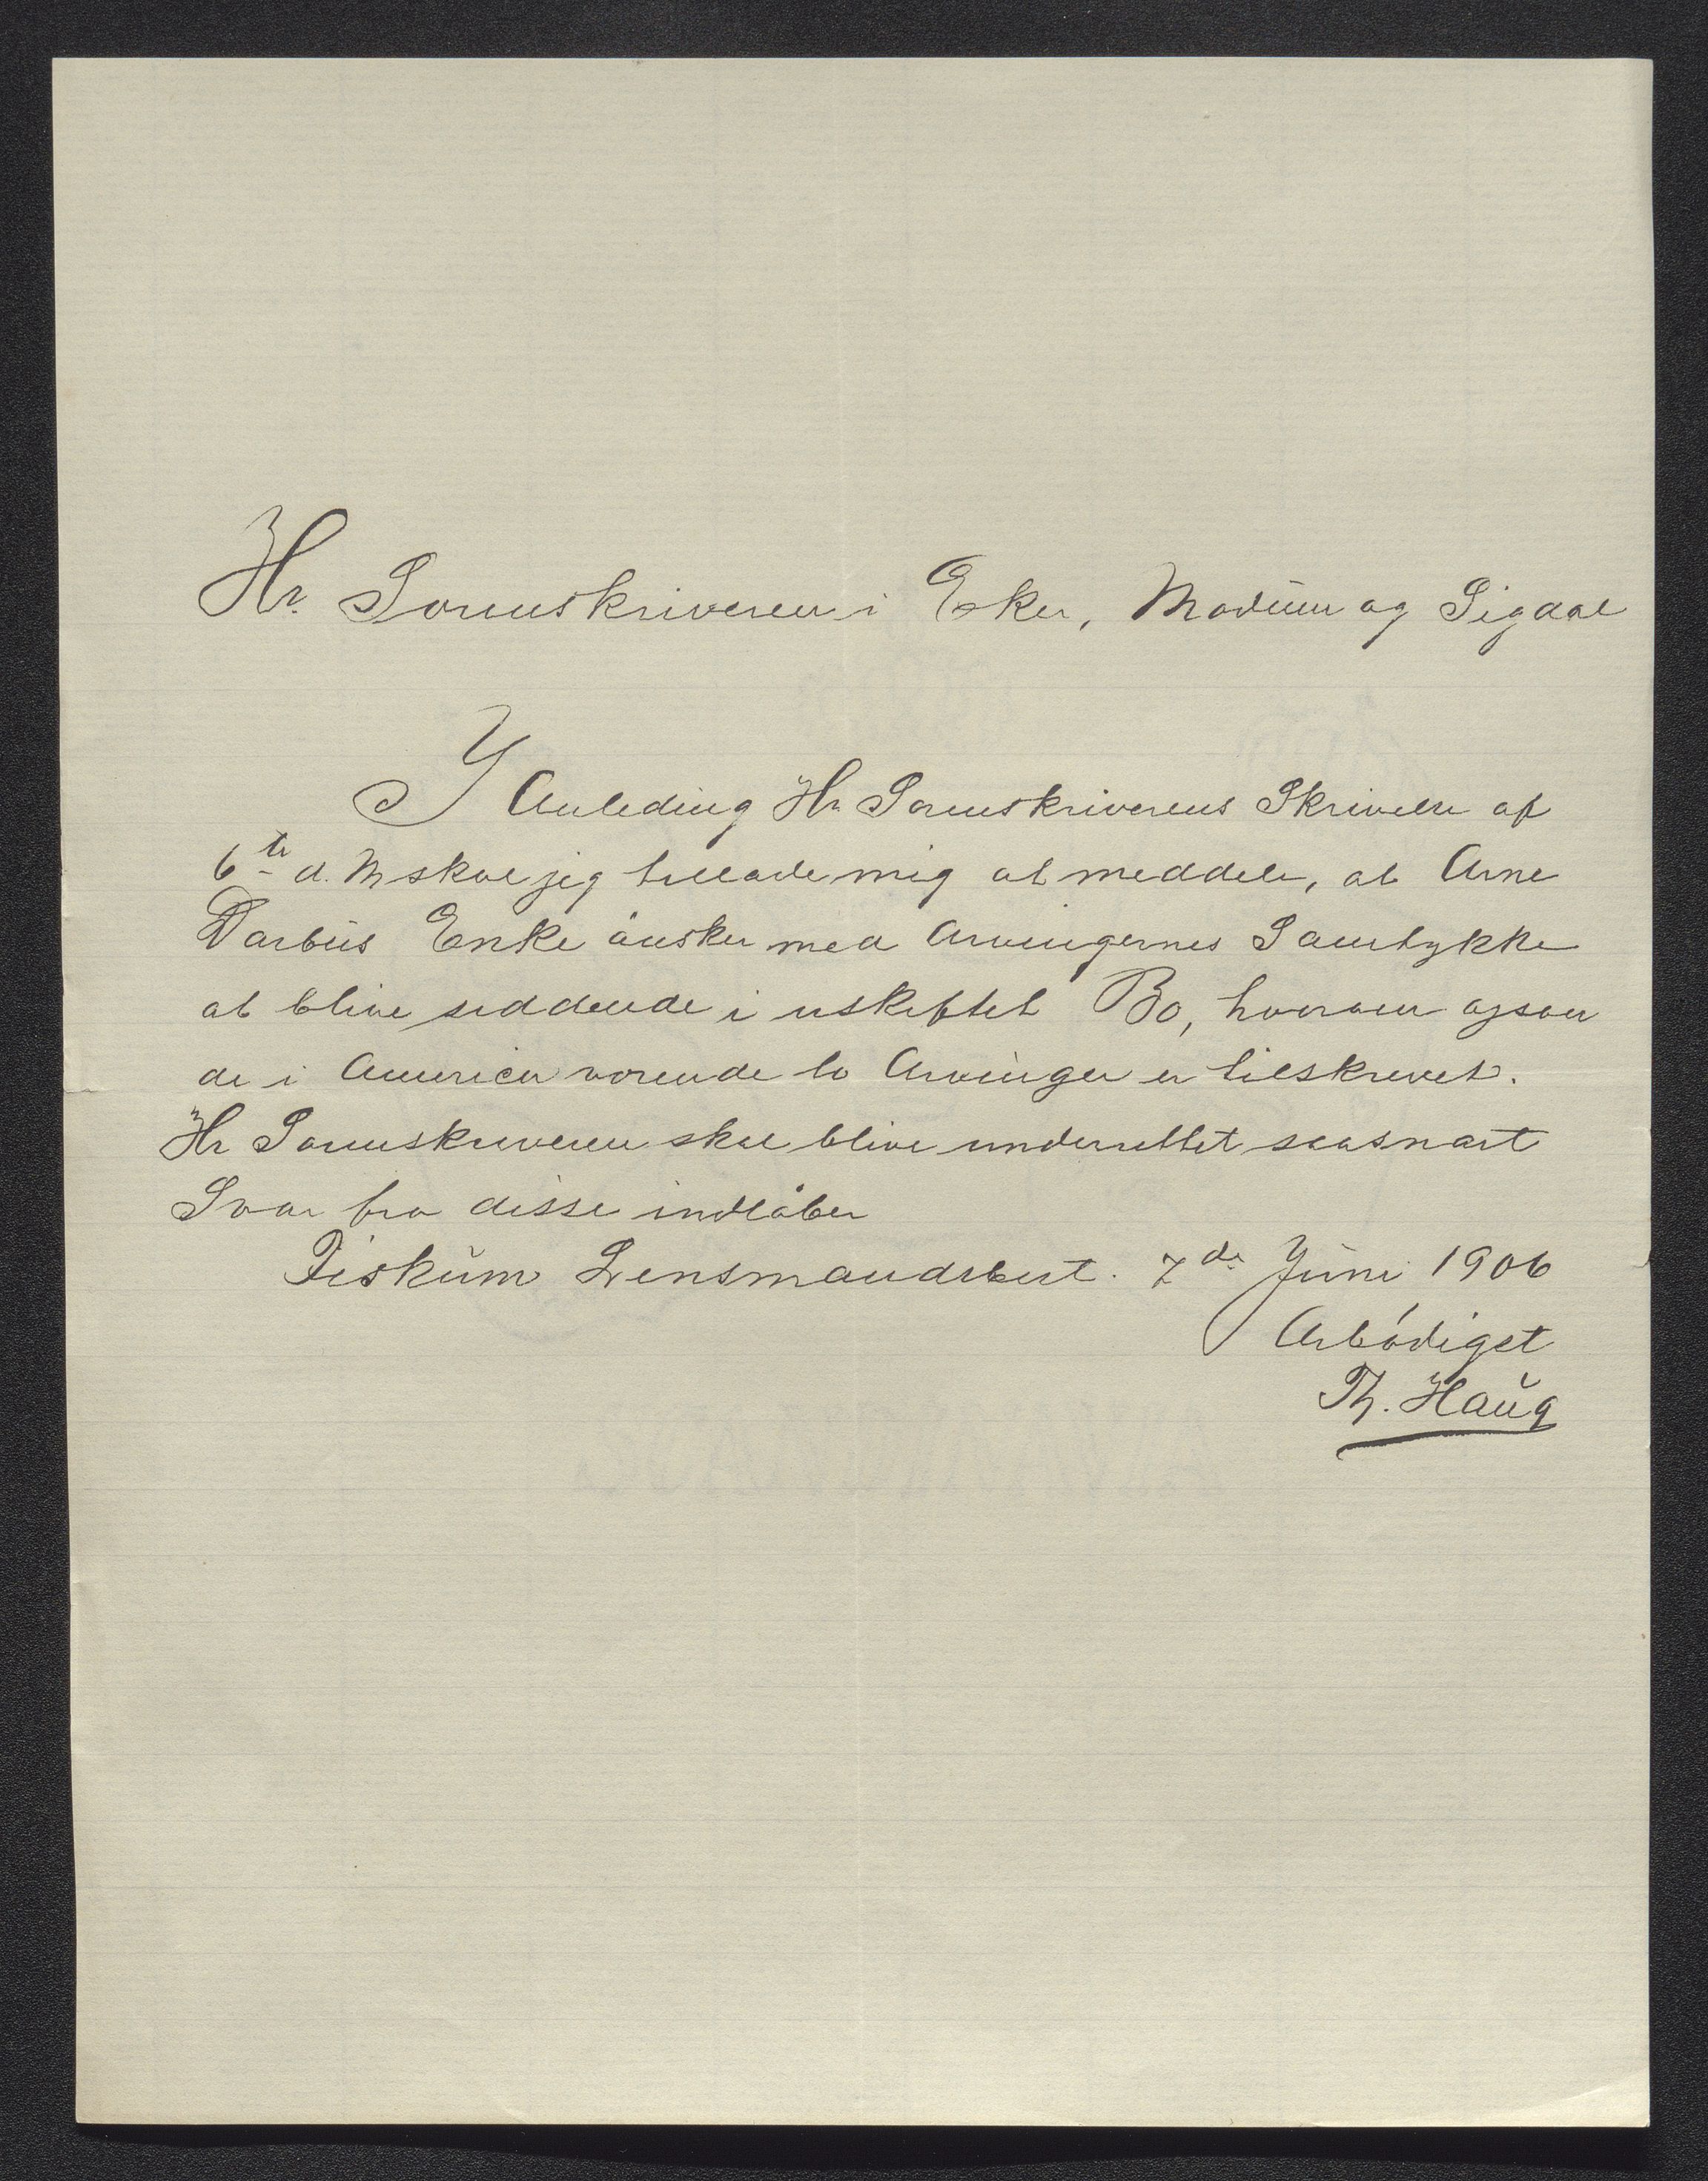 Hr. Sorenskriveren i Eker, Modum og Sigdal
I Anleding Hr Sorenskriverens Skrivelse af
6te d. M skal jeg tillade mig at meddele, at Arne
Darbus Enke ønsker med Arvingernes Samtykke
at blive siddende i uskiftet Bo, hvorom ogsaa
de i America værende to Arvinger er tilskrevet.
Hr Sorenskriveren skal blive underrettet saasnart
Svar fra disse indløber
Fiskum Lensmandsbest. 7de Juni 1906
Ærbødigst
Th. Haug